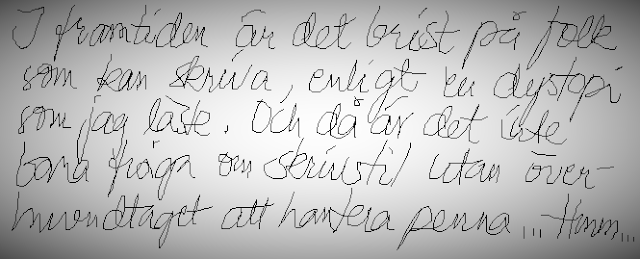 I framtiden är det brist på folk
som kan skriva, enligt en dystopi
som jag läste. Och då är det inte
bara fråga om skrivstil utan över-
huvudtaget att hantera penna... Hmm...